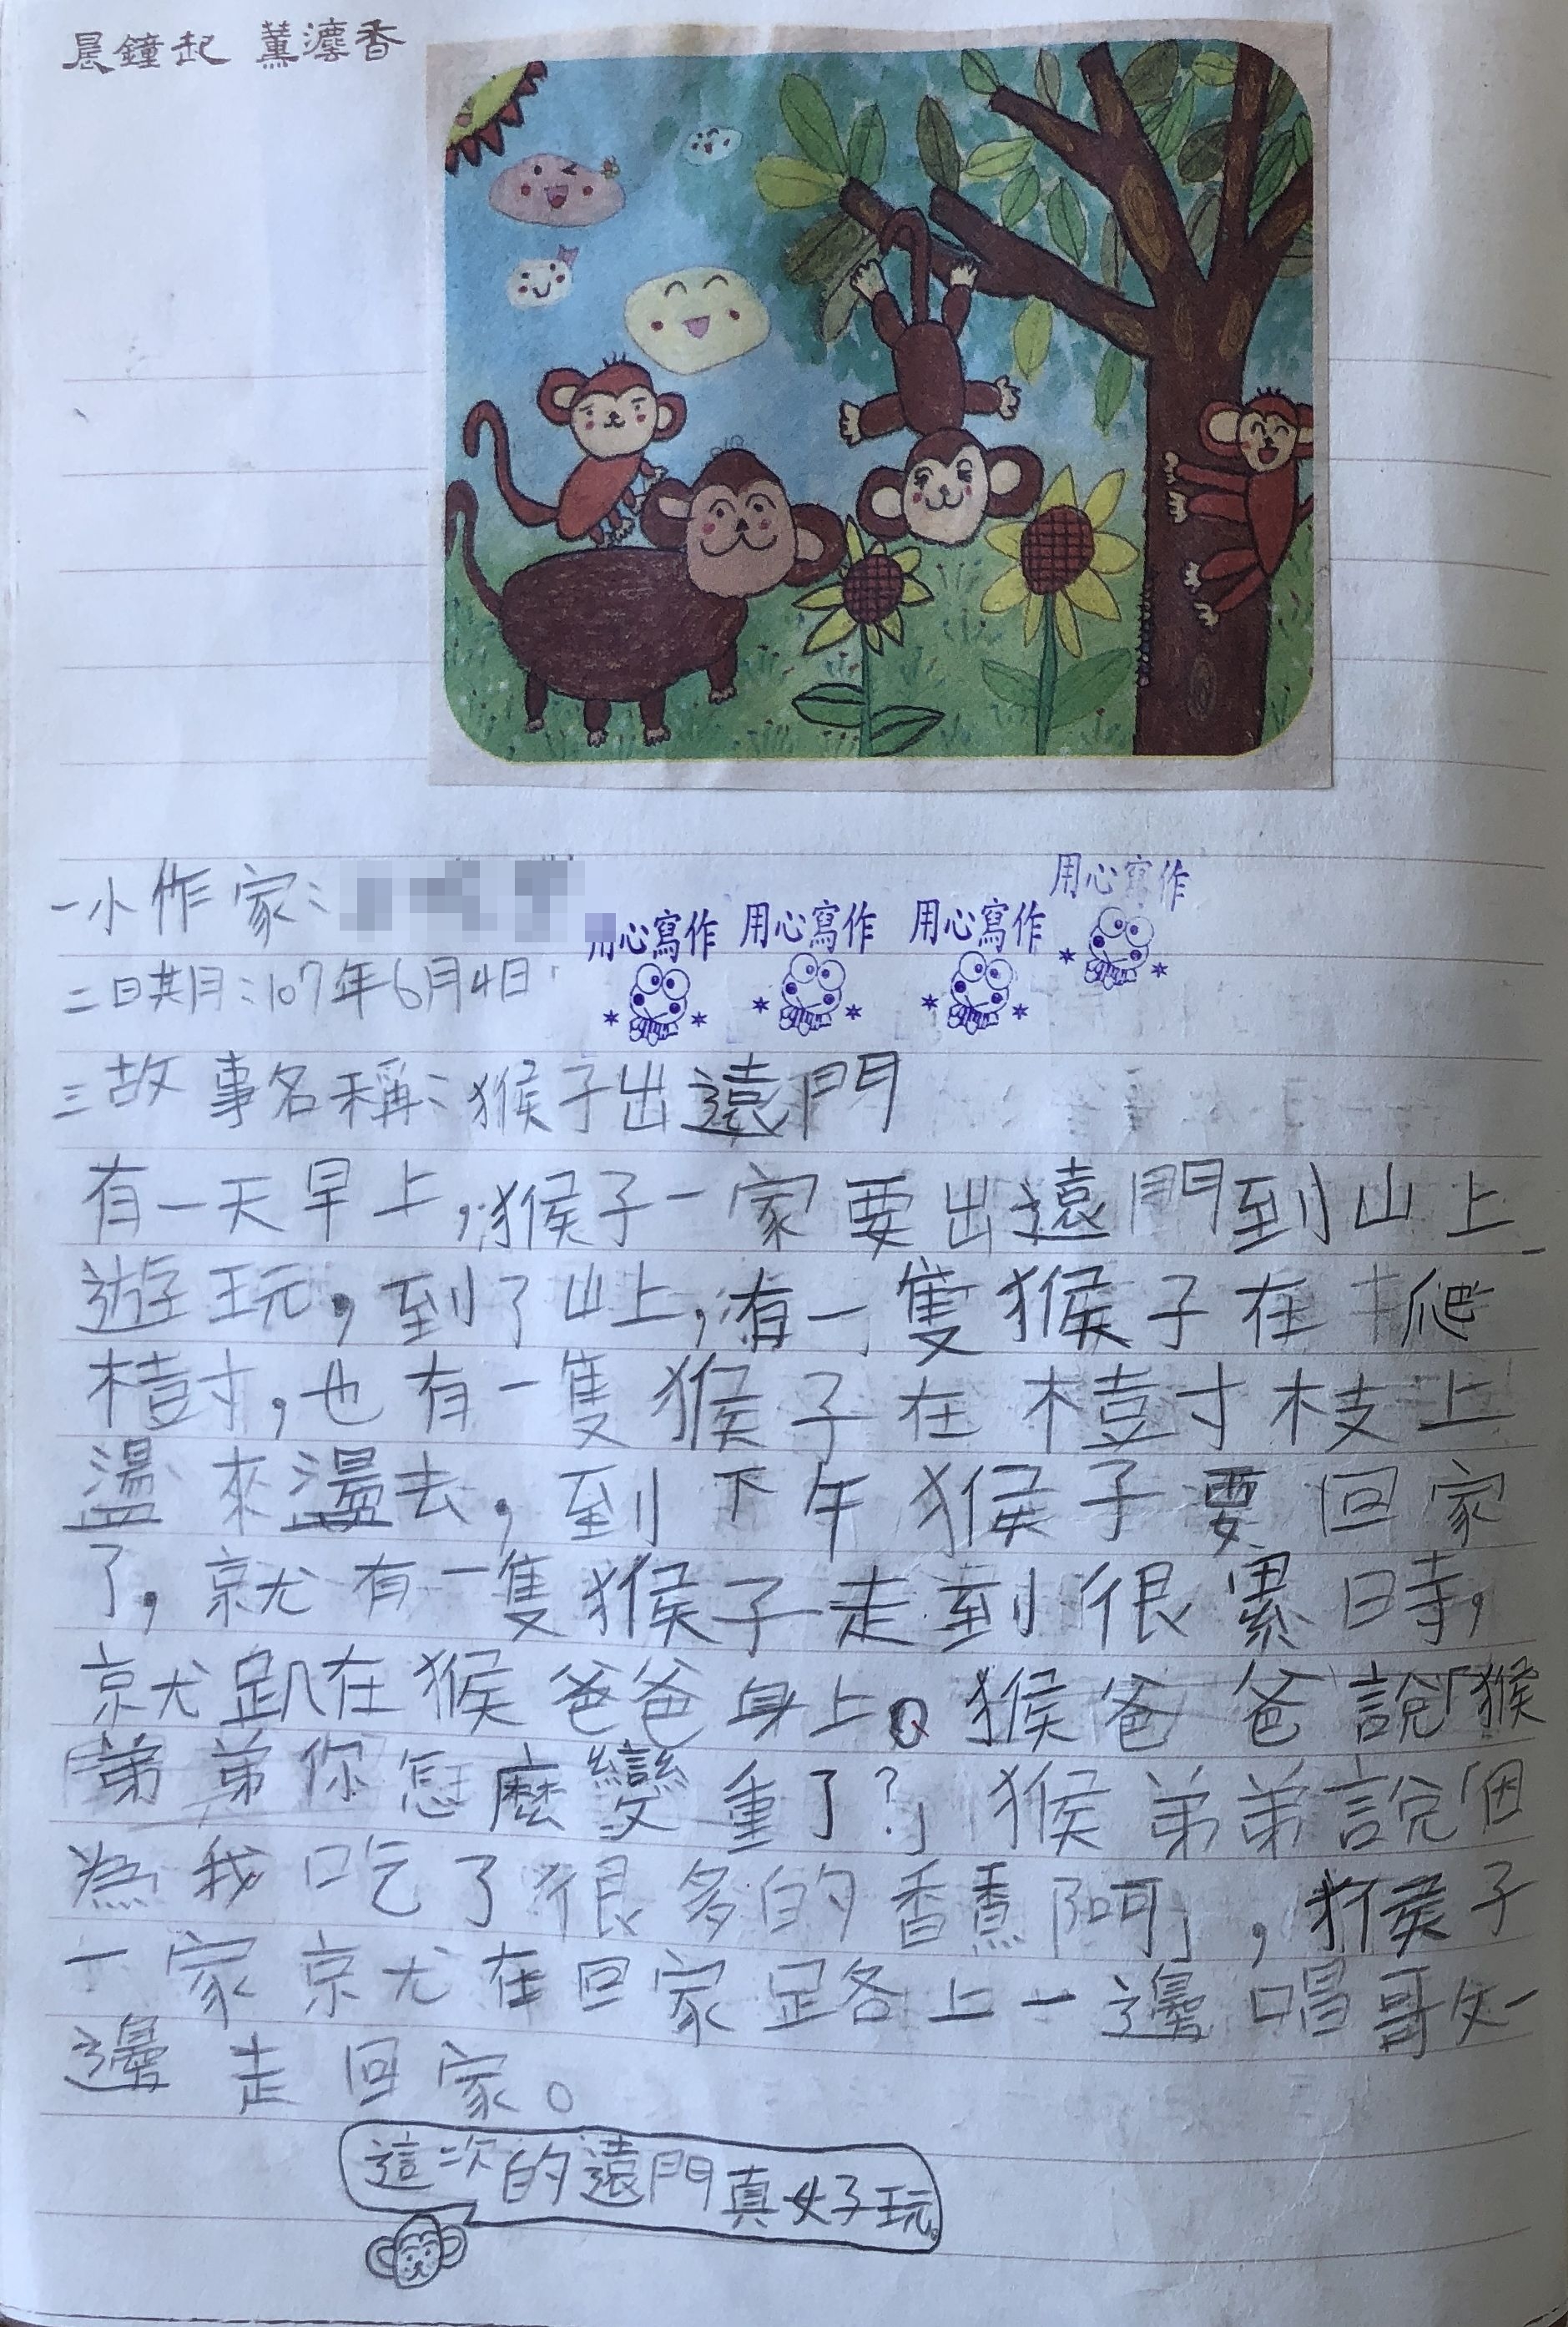 晨鐘起 薰濃香
一小作家：
用心寫作 用心寫作 用心寫作 用心寫作
二日期：107年6月4日
三故事名稱：猴子出遠門
有一天早上，猴子一家要出遠門到山上
遊玩，到了山上，有一隻猴子在爬
樹，也有一隻猴子在樹枝上
盪來盪去，到下午猴子要回家
了，就有一隻猴子走到很累時，
就趴在猴爸爸身上。猴爸爸說「猴
弟弟你怎麼變重了?」猴弟弟說「因
為我吃了很多的香蕉阿」，猴子
一家就在回家路上一邊唱歌一
邊走回家。
這次的遠門真好玩。